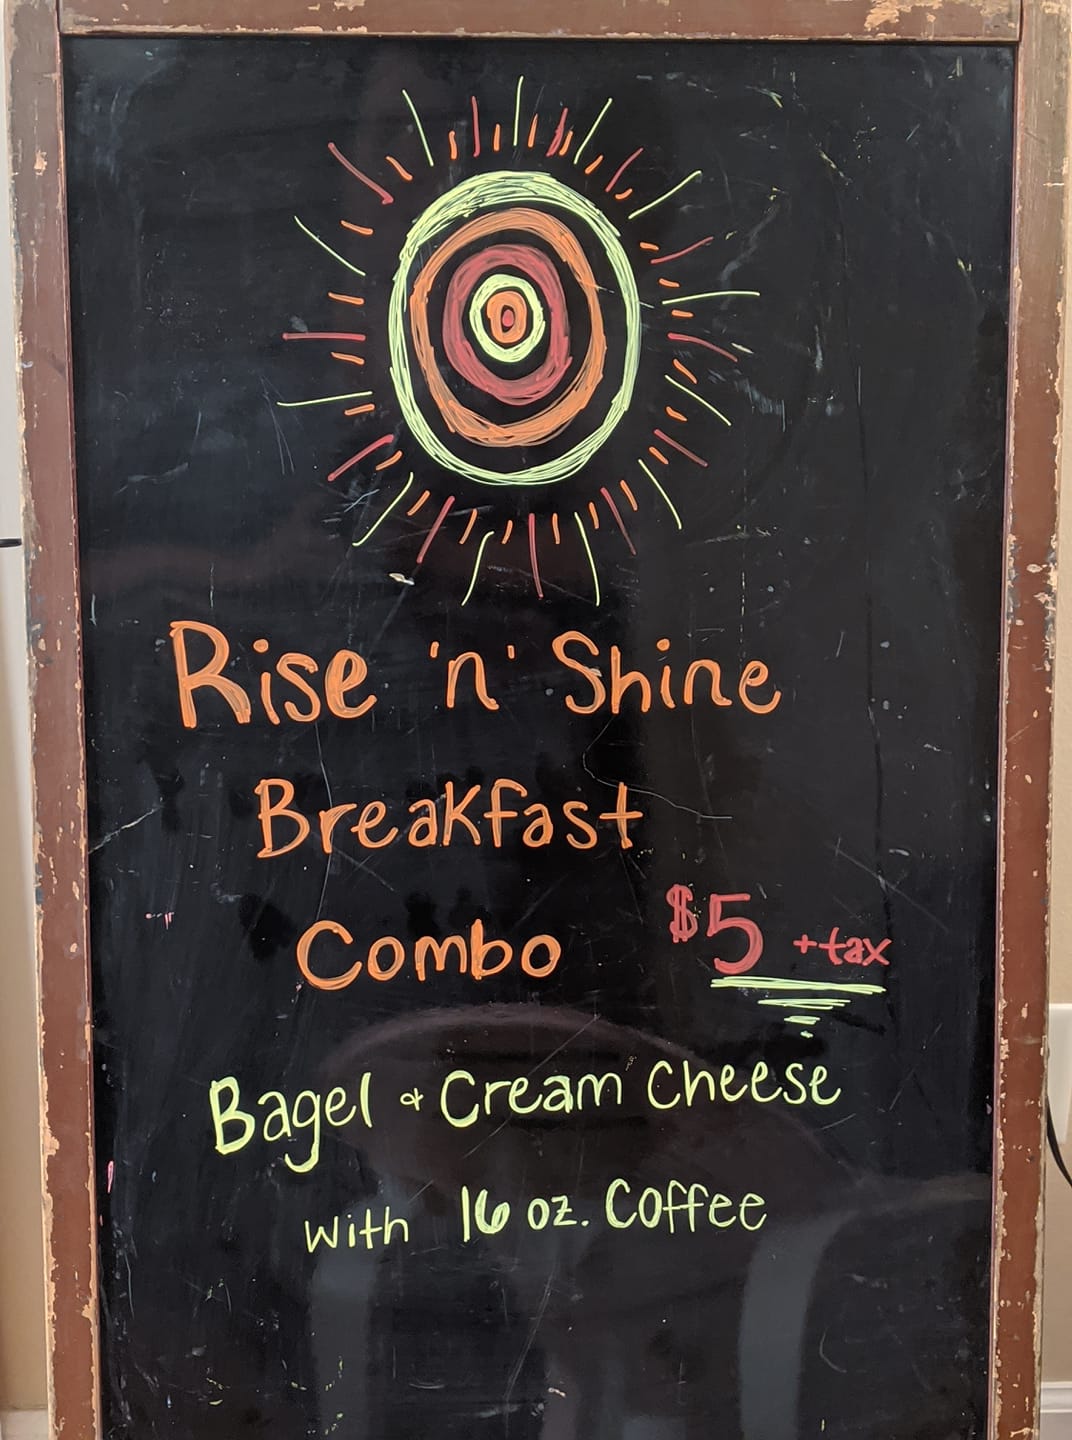 Rise 'n' Shine
Breakfast
Combo $5 +tax
Bagel & Cream Cheese
With 16 oz. Coffee